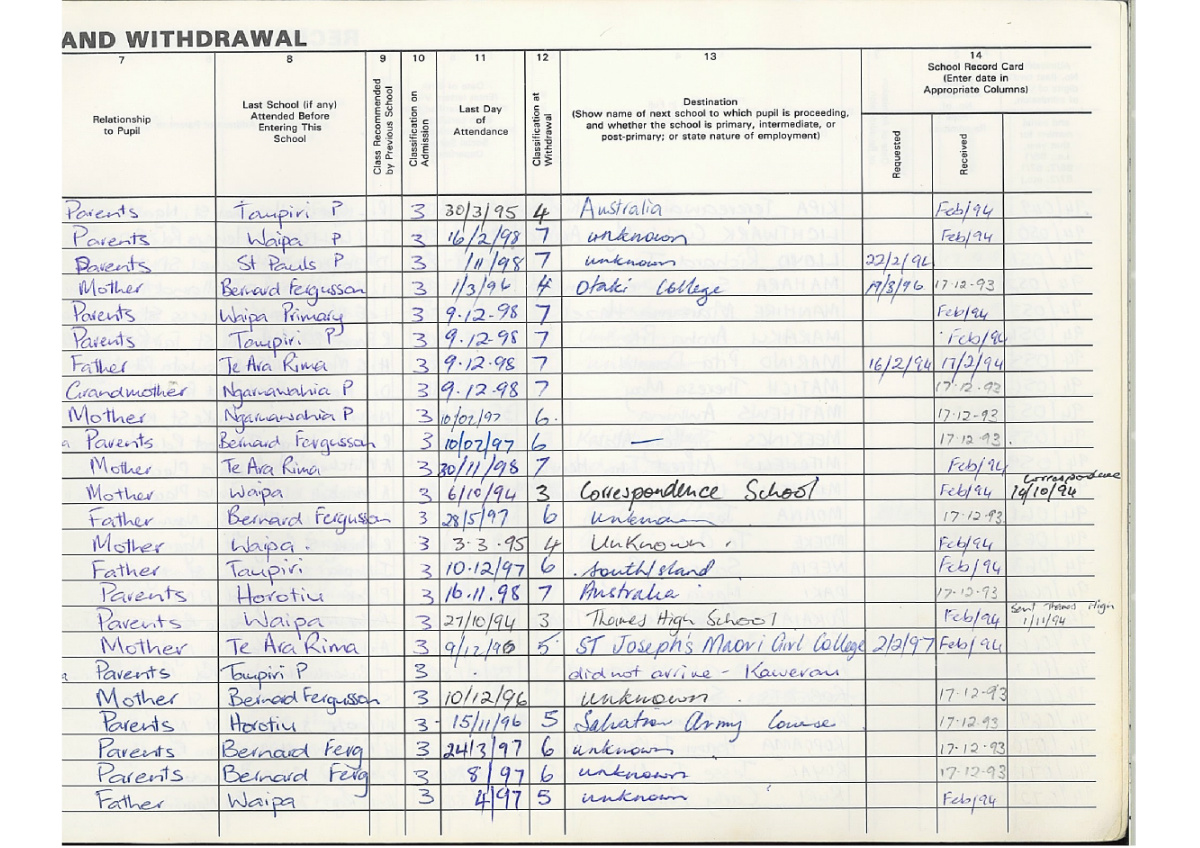 AND WITHDRAWAL
7 8 9 10 11 12 13 14
Relationship to Pupil
Last School (if any) Attended Before Entering This School
Class Recommended by Previous School
Classification on Admission
Last Day of Attendance
Classification at Withdrawal
Destination
(Show name of next school to which pupil is proceeding, and whether the school is primary, intermediate, or post-primary; or state nature of employment)
School Record Card (Enter date in Appropriate Columns)
Requested
Received
Parents Taupiri P 3 30/3/95 4 Australia Feb/94
Parents Waipa P 3 16/2/98 7 unknown Feb/94
Parents St Pauls P 3 1/11/98 7 unknown 22/2/94
Mother Bernard Fergusson 3 1/3/96 4 Otaki College 19/3/96 17-12-93
Parents Waipa Primary 3 9.12-98 7 Feb/94
Parents Taupiri P 3 9.12.98 7 Feb/94
Father Te Ara Rima 3 9.12.98 7 16/2/94 17/2/94
Grandmother Ngaruawahia P 3 9.12.98 7 17.12.93
Mother Ngaruawahia P 3 10/02/97 6. 17-12-93
a Parents Bernard Fergusson 3 10/02/97 6 — 17.12.93.
Mother Te Ara Rima 3 30/11/98 7 Feb/94
Mother Waipa 3 6/10/94 3 Correspondence School Feb/94 Correspondence 19/10/94
Father Bernard Fergusson 3 28/5/97 6 unknown 17-12-93
Mother Waipa. 3 3.3.95 4 UnKnown. Feb/94
Father Taupiri 3 10.12/97 6 .South Island Feb/94
Parents Horotiu 3 16.11.98 7 Australia 17-12-93
Parents Waipa 3 27/10/94 3 Thames High School Feb/94 Sent Thames High 1/11/94
Mother Te Ara Rima 3 9/12/96 5 ST Joseph's Maori Girl College 2/2/97 Feb/94
a Parents Taupiri P 3 . did not arrive - Kawerau
Mother Bernard Fergusson 3 10/12/96 unknown. 17-12-93
Parents Horotiu 3 15/11/96 5 Salvation Army Course 17.12.93
Parents Bernard Ferg 3 24/3/97 6 unknown 17-12-93
Parents Bernard Ferg 3 8/97 6 unknown 17-12-93
Father Waipa 3 4/97 5 unknown Feb/94